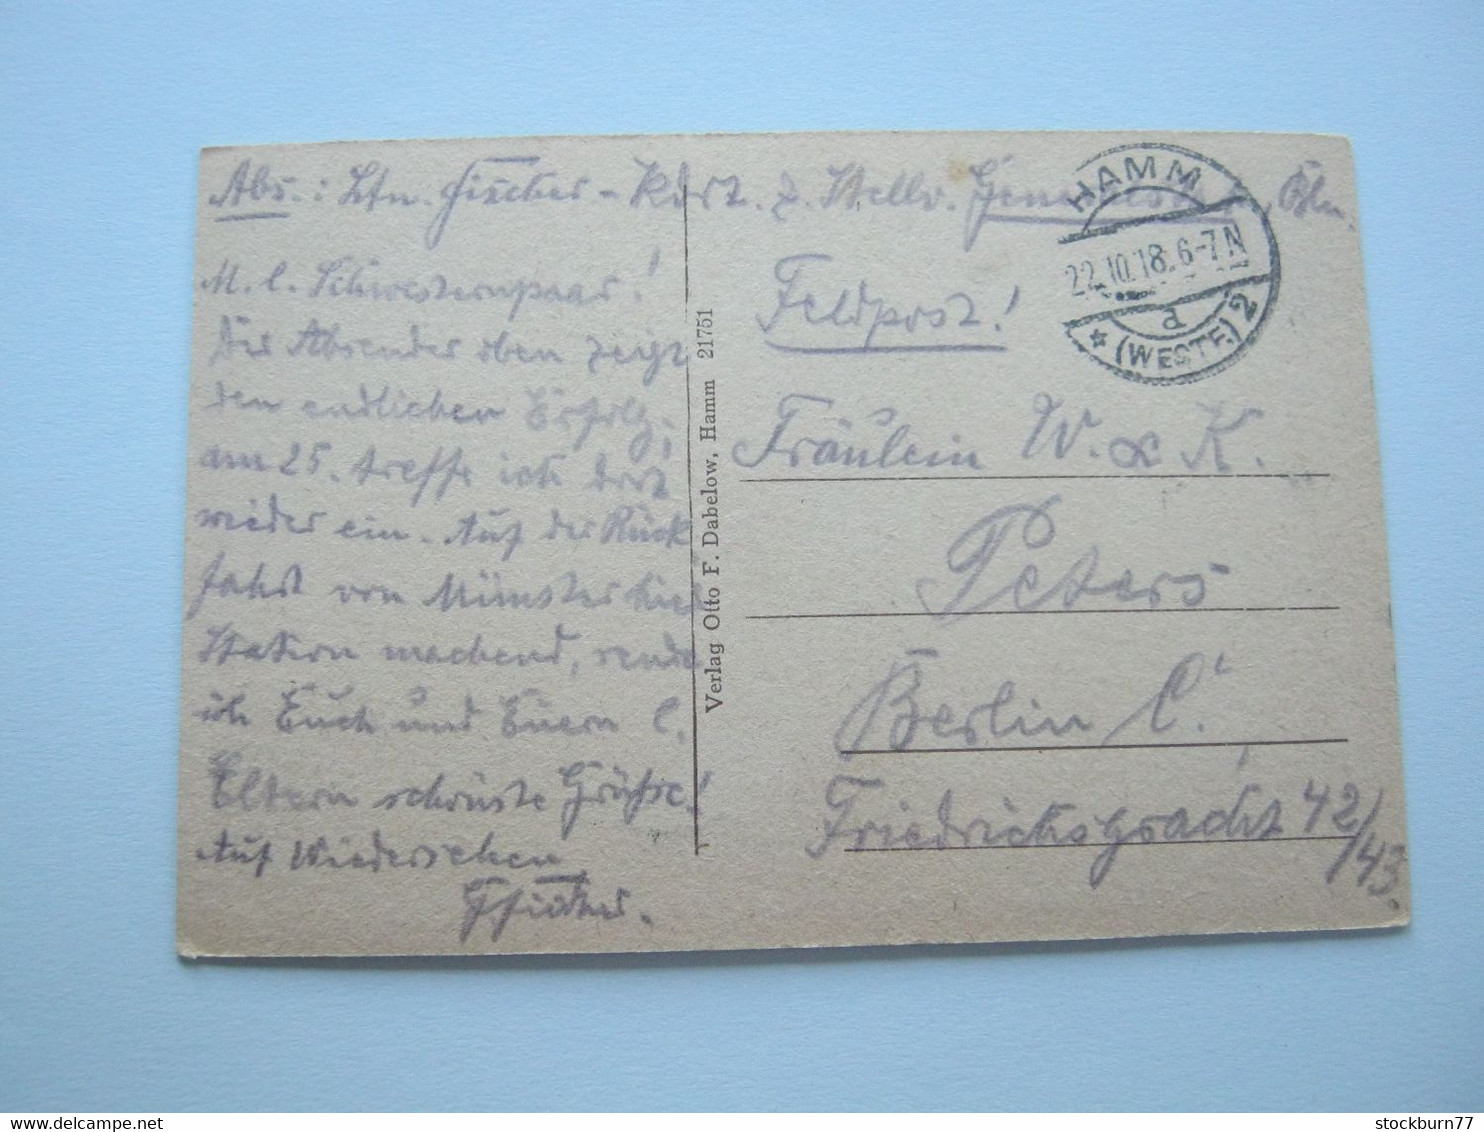 Abs.: Ltn. Fischer - Kdrt. z. Stellv. Generalstab, Bln.
HAMM
22.10.18. 6-7 N
d
* (WESTF.) 2
M. l. Schwesternpaar!
Der Absender oben zeigt
den endlichen Erfolg;
am 25. treffe ich dort
wieder ein. Auf der Rück
fahrt von Münster hier
Station machend, sende
ich Euch und Euern l.
Eltern schönste Grüsse!
Auf Wiedersehen
Fischer.
Verlag Otto F. Dabelow, Hamm 21751
Feldpost!
Fräulein W. & K.
Peters
Berlin C.
Friedrichsgracht 42/
/43.
stockburn77